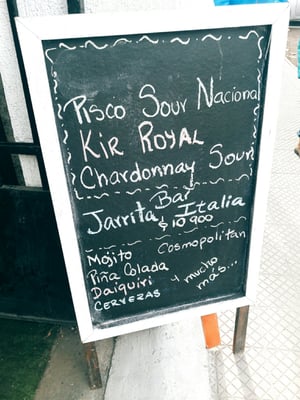 Pisco Sour Nacional
Kir Royal
Chardonnay Sour
Bar
Jarrita Italia
$10.900
Mojito
Cosmopolitan
Piña Colada
Daiquiri
Cervezas
y mucho
más...